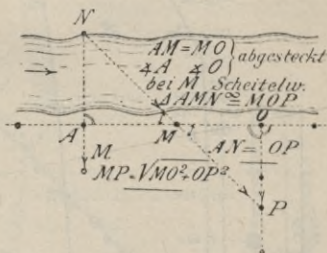 N
AM = MO
∡A ∡O } abgesteckt
bei M Scheitelw.
△ AMN ≅ MOP
A
M
O
AN = OP
M
MP = √MO² + OP²
P